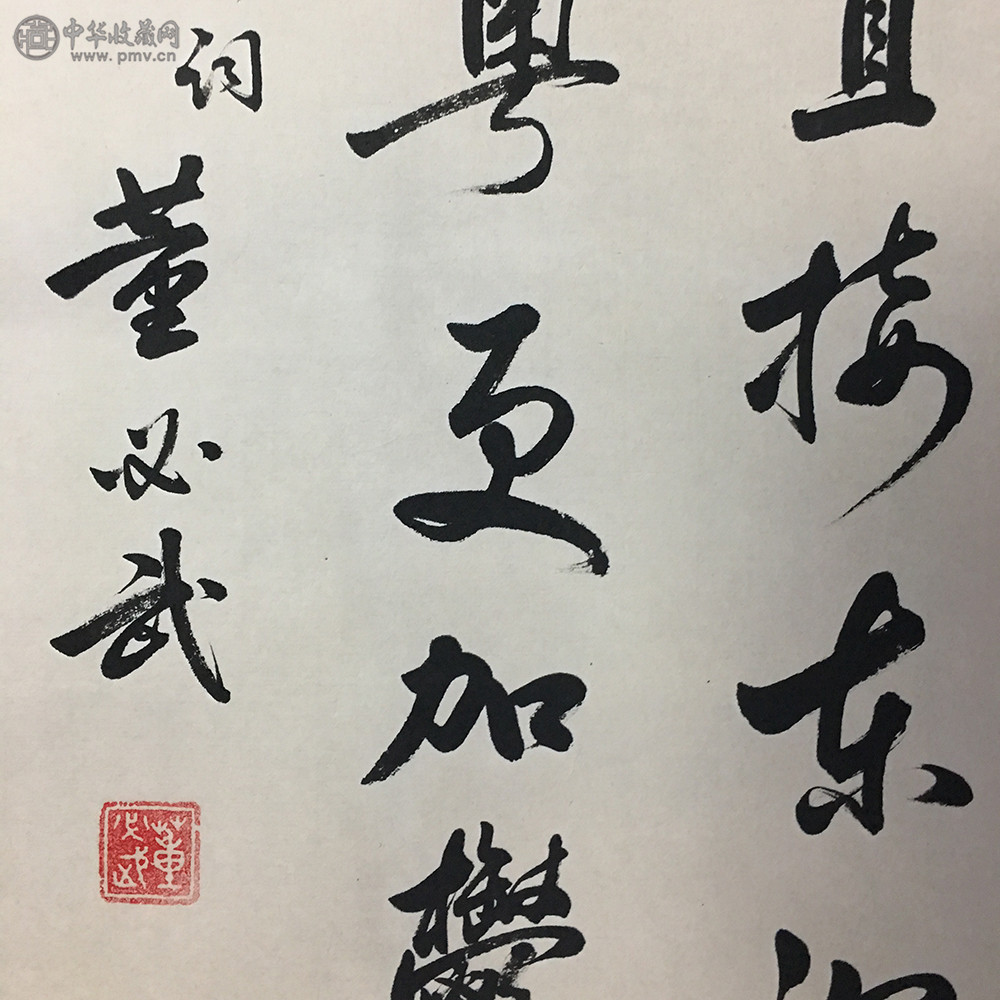 中华收藏网
www.pmv.cn
直接东
粤更加鬱
词
董必武
董必武